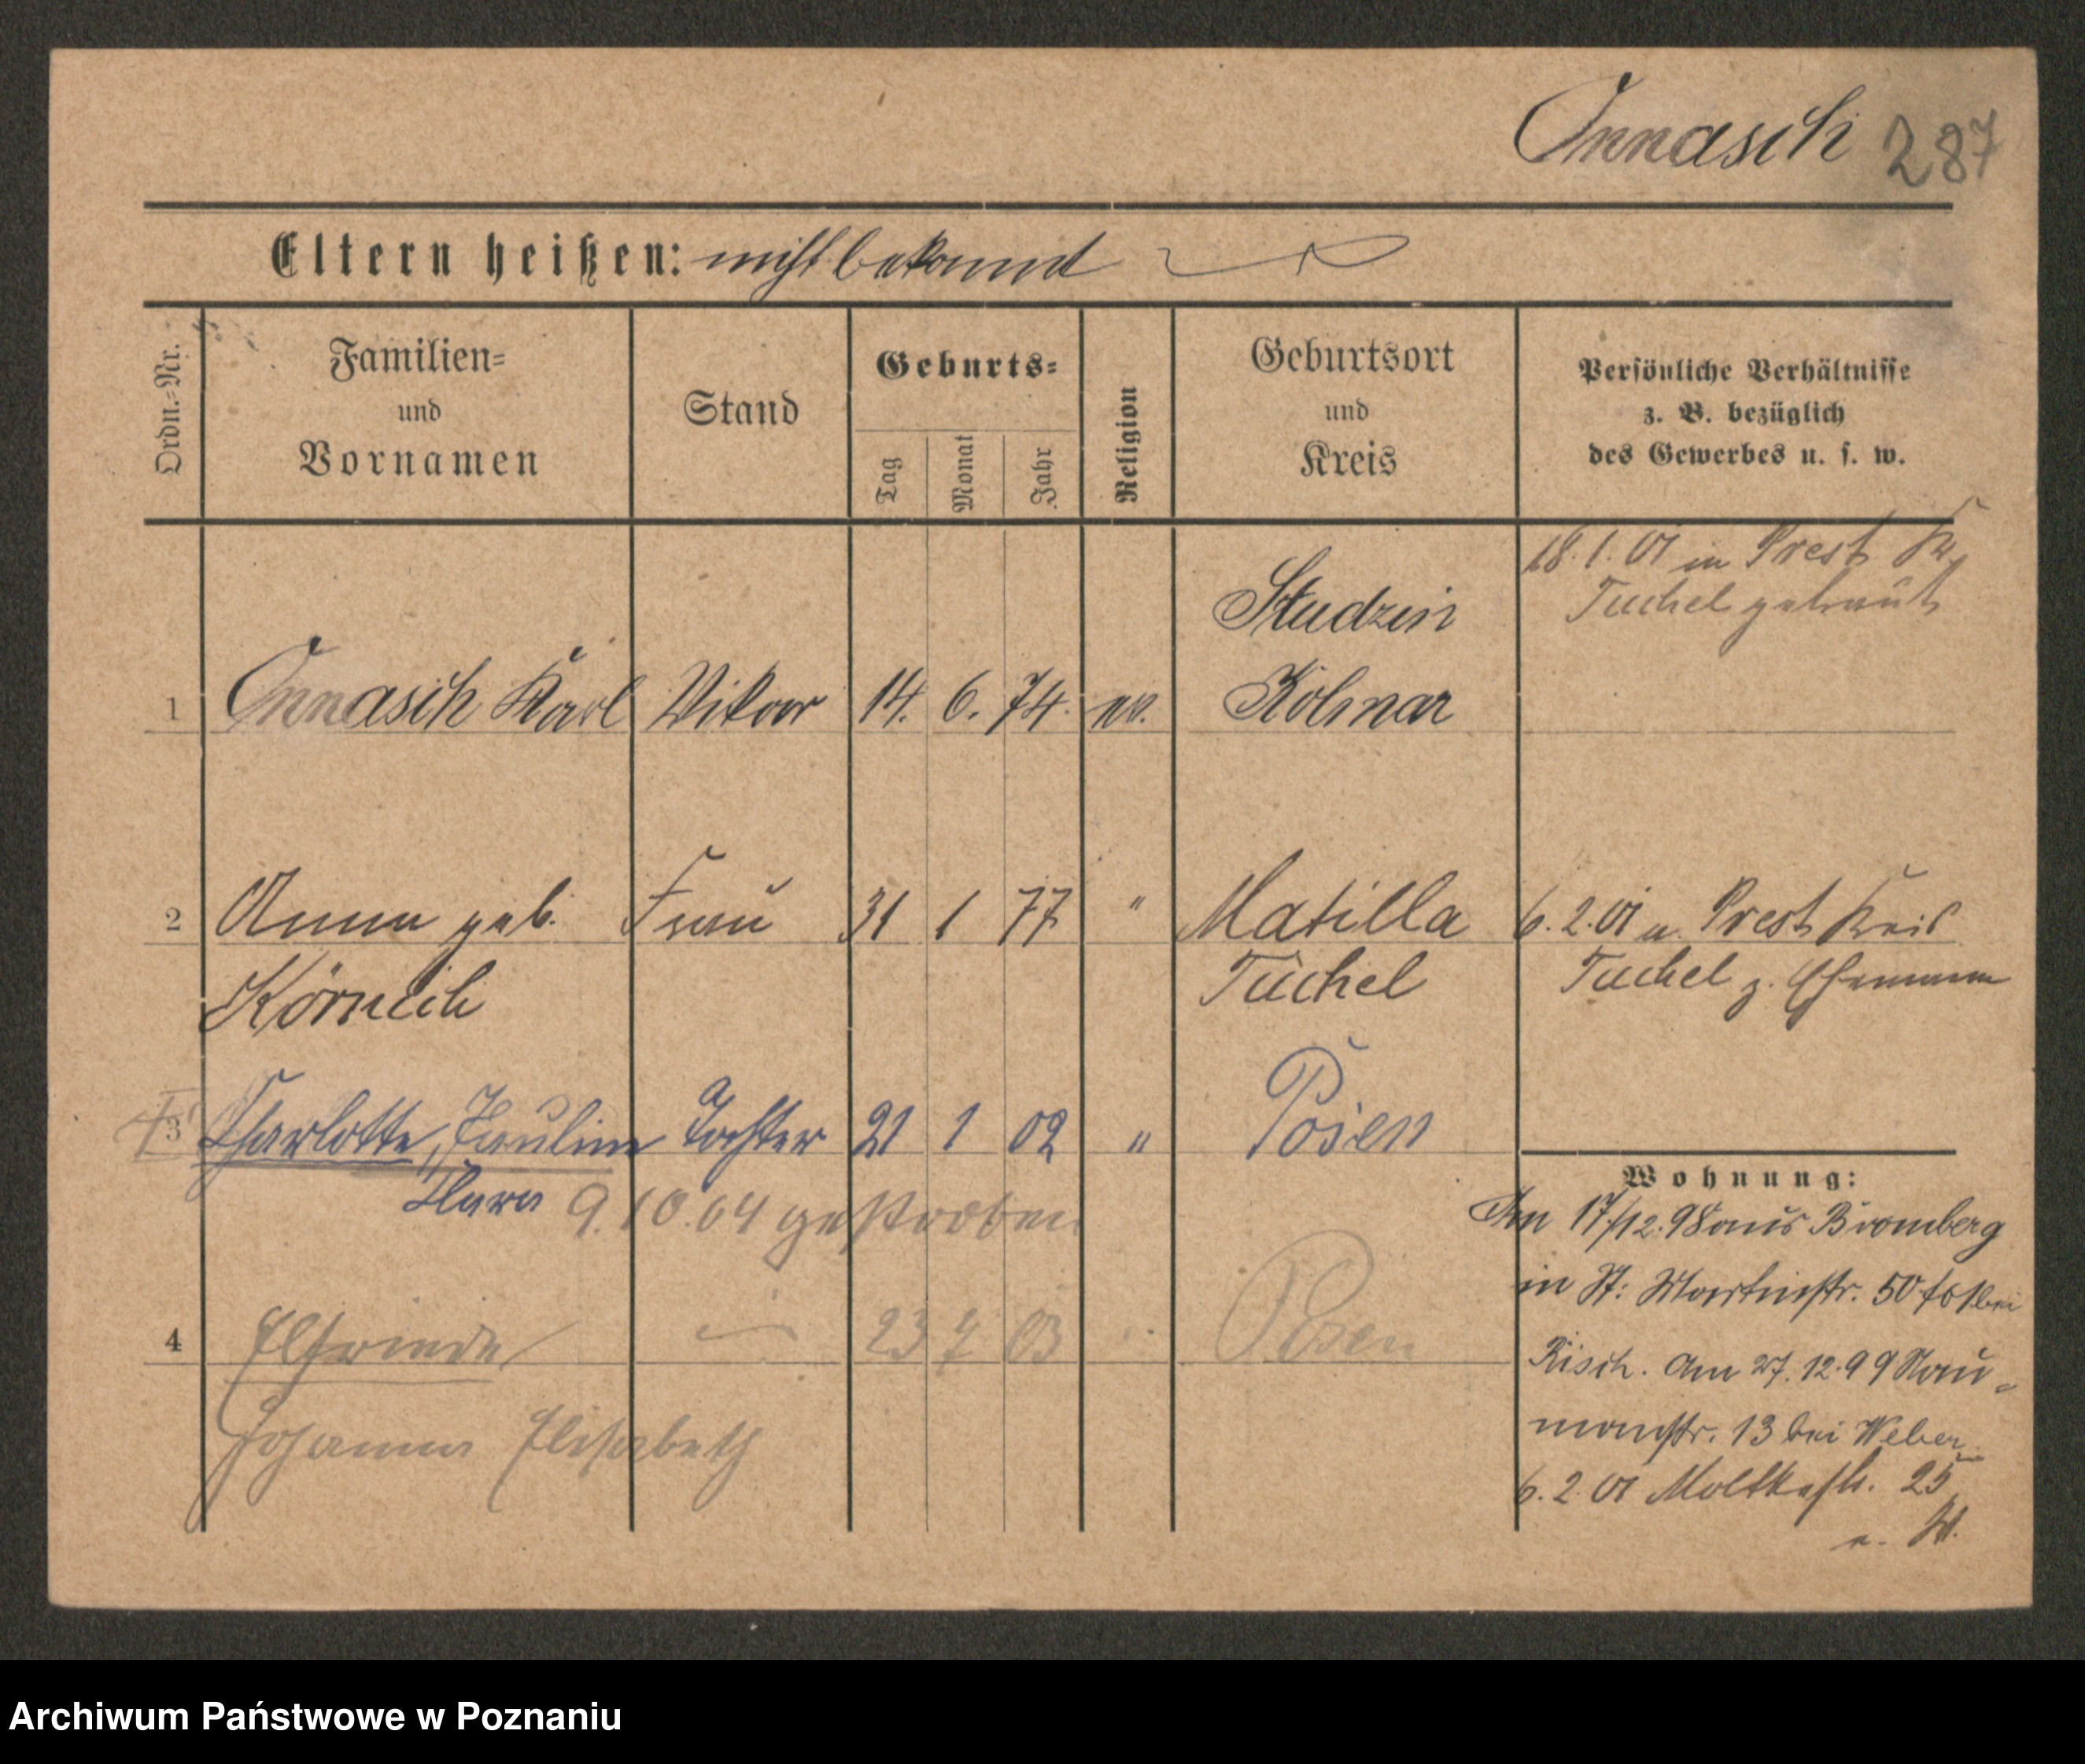 Onnasch 287
Eltern heißen: nicht bekannt
Ordn.=Nr.
Familien=
und
Vornamen
Stand
Geburts=
Tag
Monat
Jahr
Religion
Geburtsort
und
Kreis
Persönliche Verhältnisse
z. B. bezüglich
des Gewerbes u. s. w.
18. 1. 01 in Prest Kr.
Tuchel getraut
Studzin
1 Onnasch Karl Vikar 14. 6. 74. ev. Kolmar
2 Anna geb. Frau 31 1 77 " Matilla 6. 2. 01 v. Prest Kreis
Körnich Tuchel Tuchel z. Ehemann
3 Charlotte, Pauline Tochter 21 1 02 " Posen
Clara 9. 10. 04 gestorben
4 Elfriede 23 7 03 Posen
Johanna Elisabeth
Wohnung:
Am 17/12. 98 aus Bromberg
in St: Martinstr. 50 bei
Risch. Am 27. 12. 99 Nau=
mannstr. 13 bei Weber
6. 2. 01 Moltkestr. 25
Archiwum Państwowe w Poznaniu